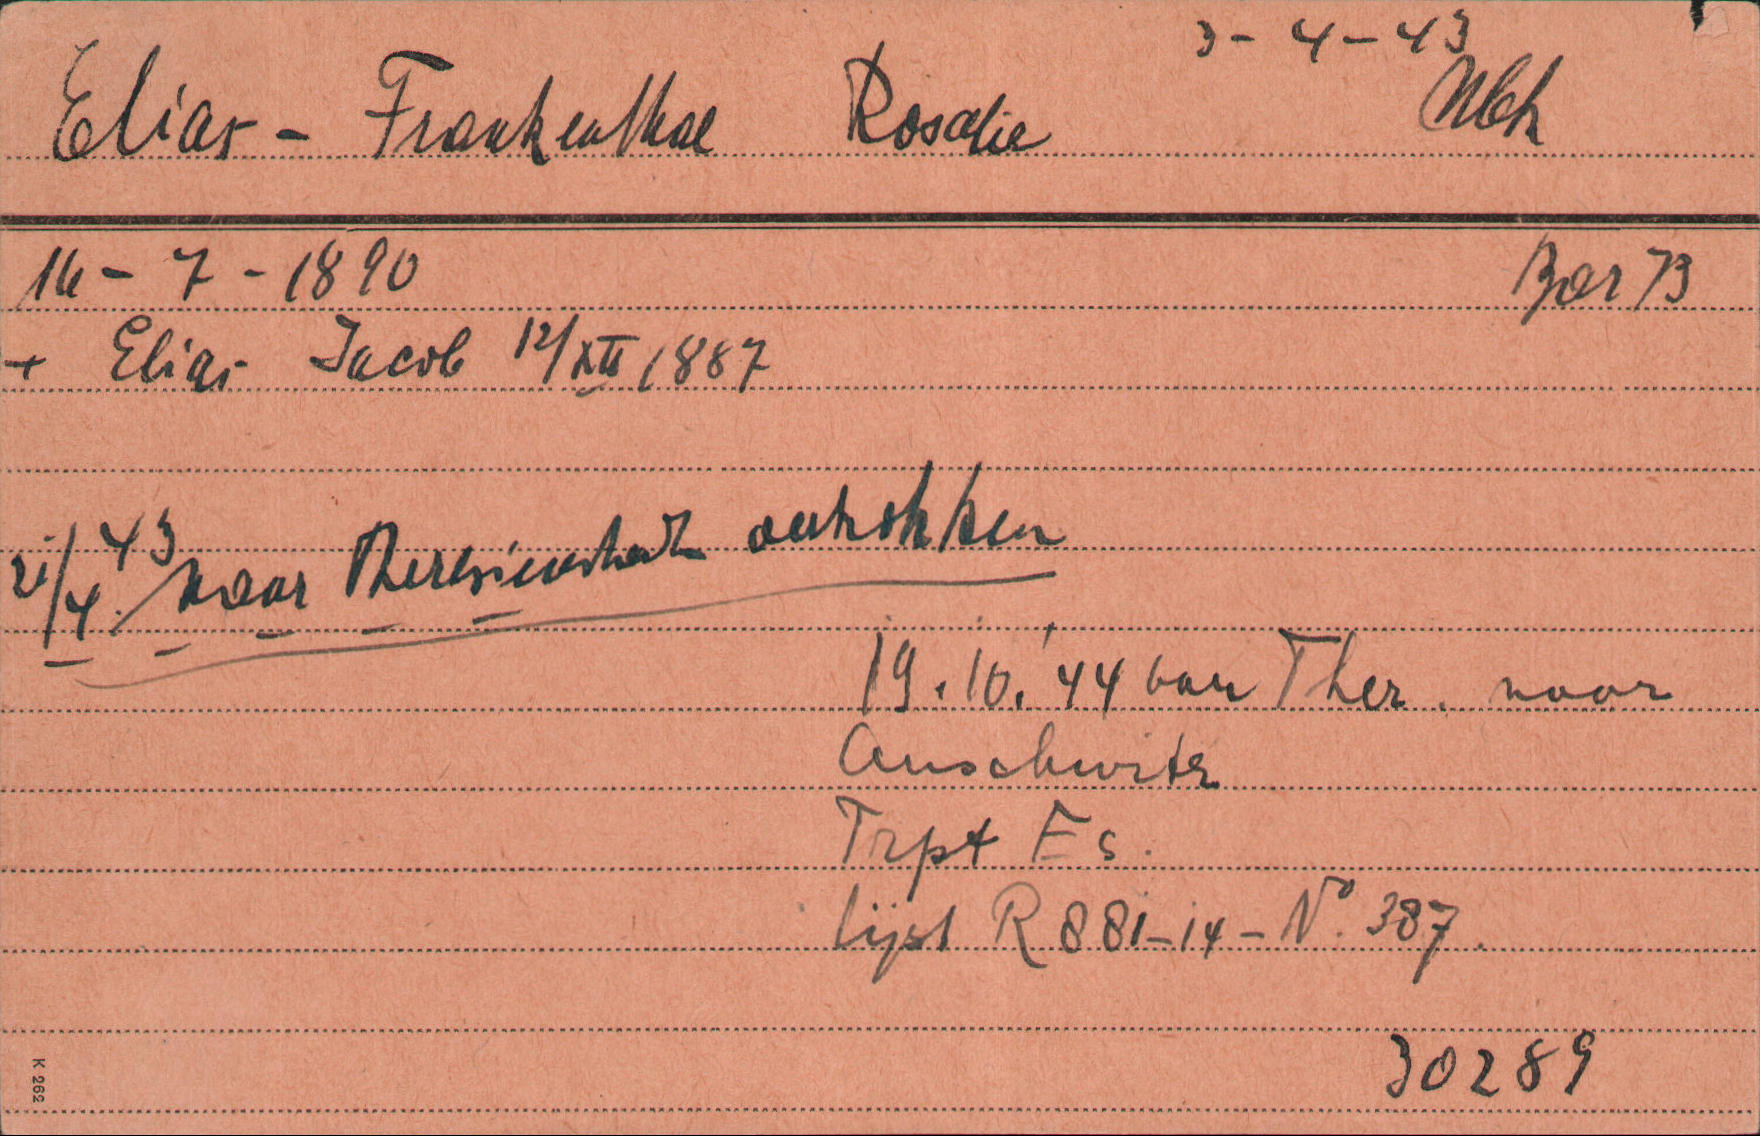 3-4-43
Elias - Frankenthal Rosalie
14-7-1890 Bar 73
+ Elias Jacob 12/XII 1887
21/4.43 naar Theresienstadt vertrokken
19.10.'44 van Ther. naar
Auschwitz
Trpt Es.
lijst R 881-14-No. 387.
30289
K 262